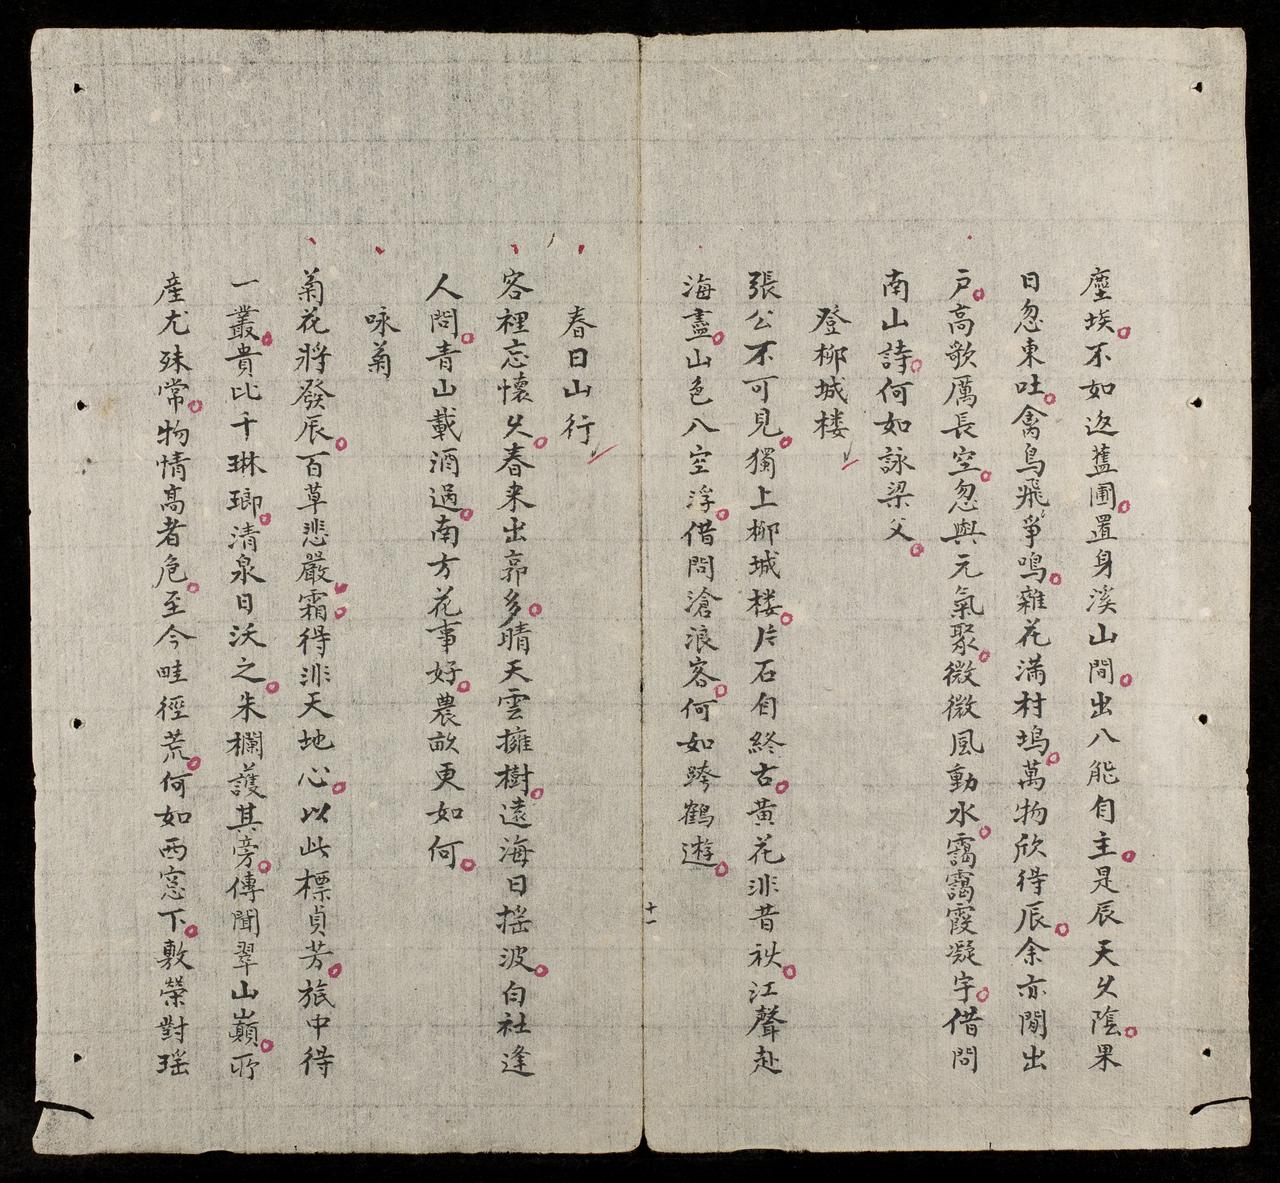 塵埃不如返舊圃置身溪山間出入能自主是辰天久陰果
日忽東吐禽鳥飛爭鳴雜花滿村塢萬物欣得辰余亦閒出
戶高歌厲長空忽與元氣聚微微風動水靄靄霞凝宇借問
南山詩何如詠梁父
登柳城楼
張公不可見獨上柳城楼片石自終古黄花非昔秋江聲赴
海盡山色入空浮借問滄浪客何如跨鶴遊
十一
春日山行
客裡忘懷久春来出郭多晴天雲擁樹遠海日摇波白社逢
人問青山載酒過南方花事好農畝更如何
咏菊
菊花將發辰百草悲嚴霜得非天地心以此標貞芳旅中得
一叢貴比千琳瑯清泉日沃之朱欄護其旁傳聞翠山巔所
産尤殊常物情高者危至今畦徑荒何如西窓下敷榮對瑶